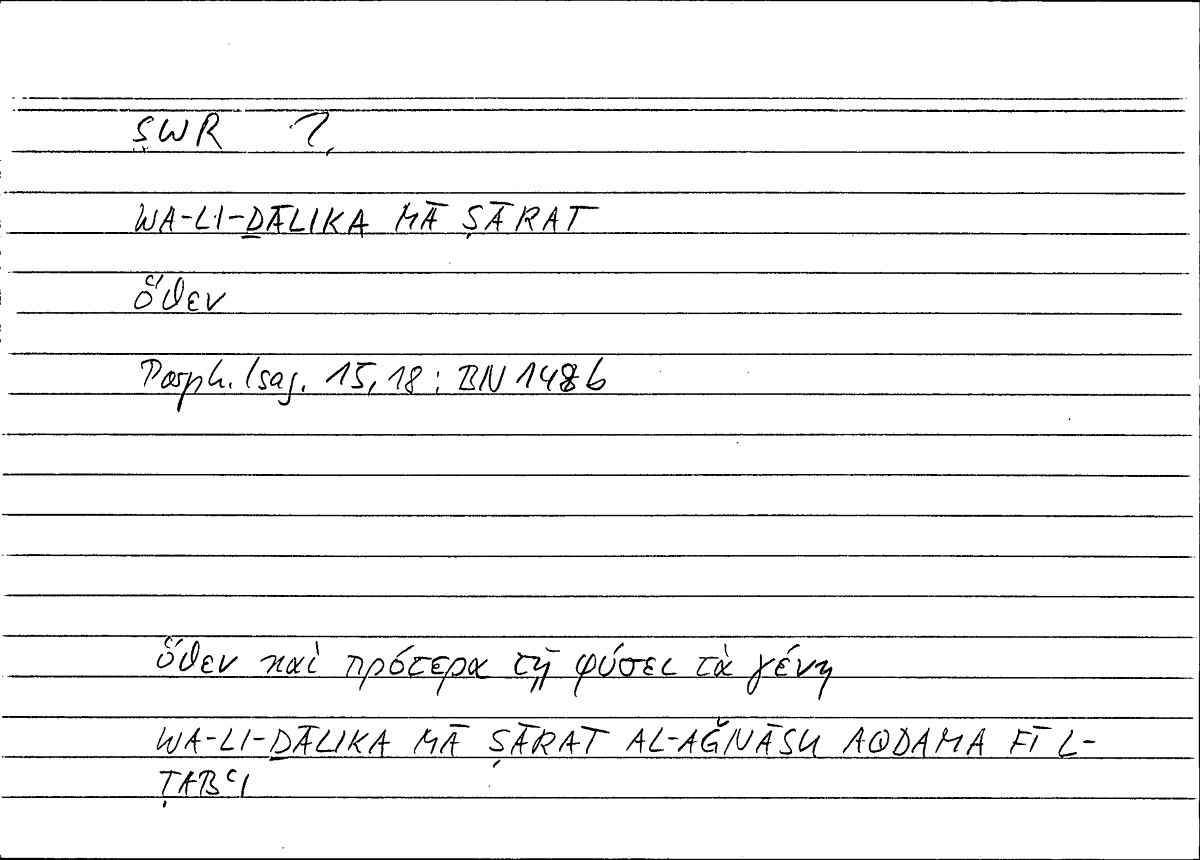 ṢWR ?
WA-LI-ḎĀLIKA MĀ ṢĀRAT
ὅθεν
Porph. Isag. 15,18 : BN 148b
ὅθεν καὶ πρότερα τῇ φύσει τὰ γένη
WA-LI-ḎĀLIKA MĀ ṢĀRAT AL-AǦNĀSU AQDAMA FĪ L-
ṬABʿI